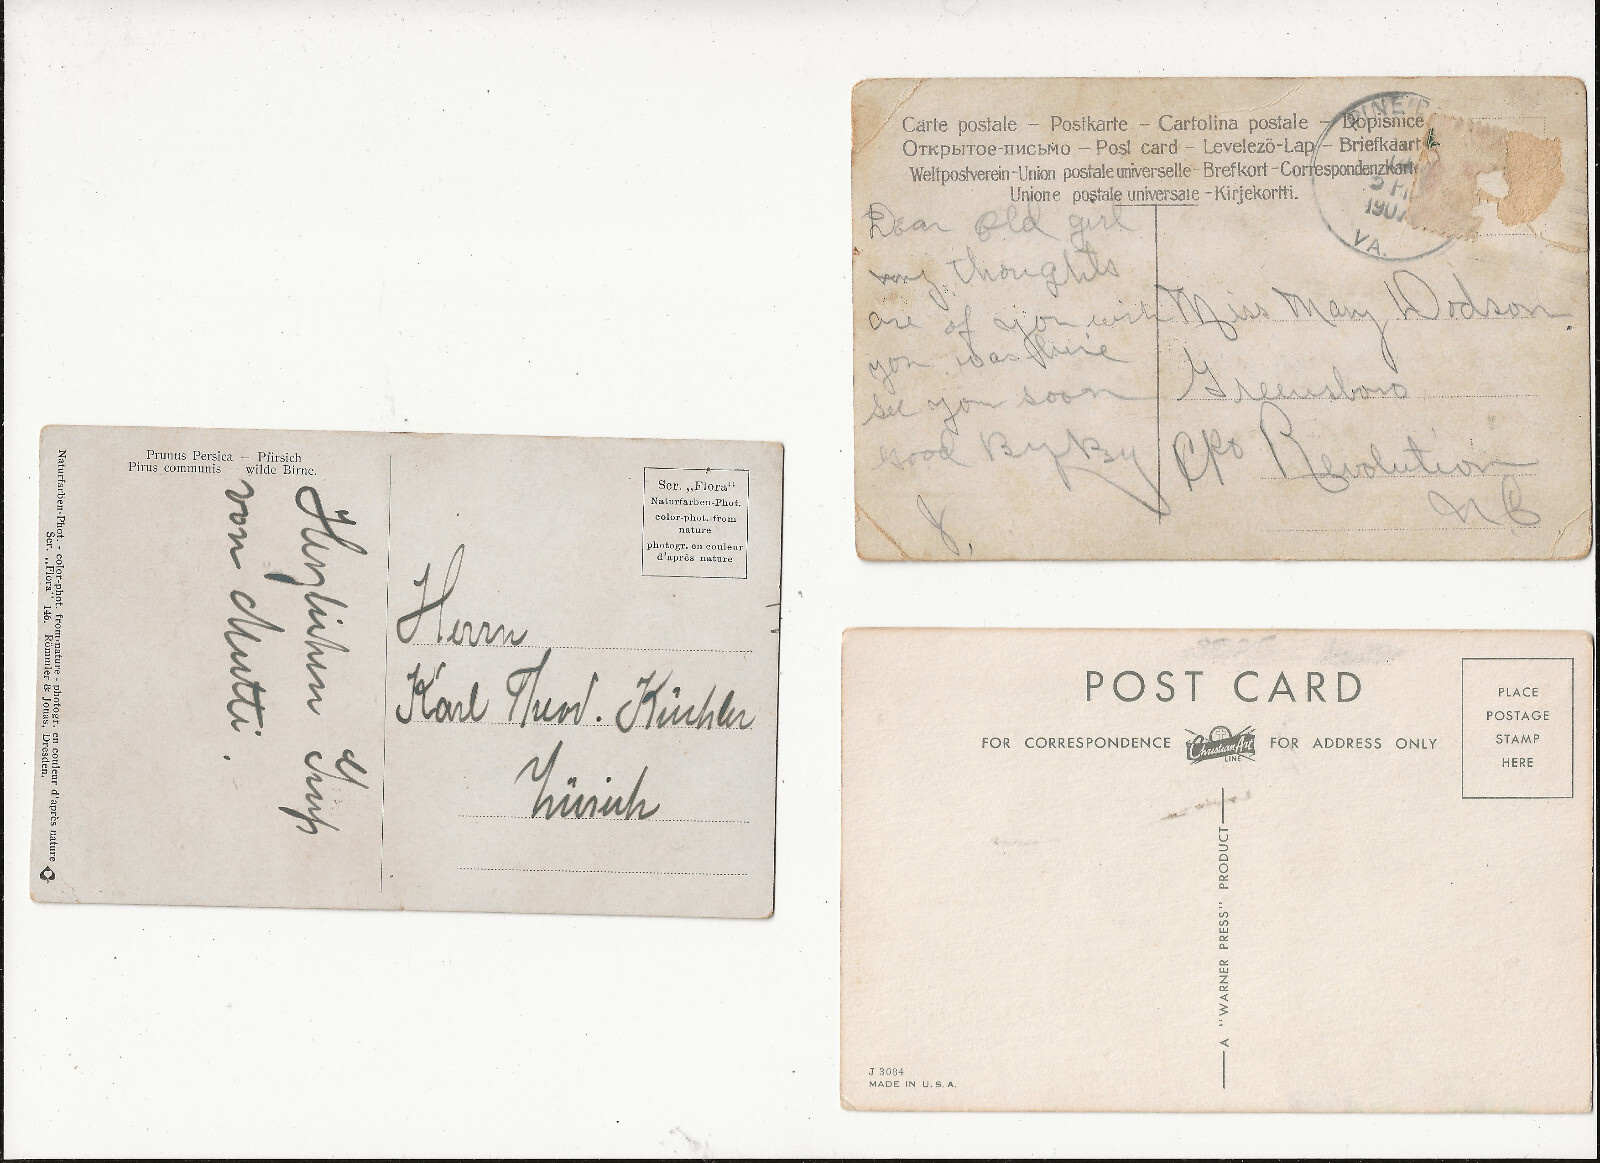 Prunus Persica — Pfirsich
Pirus communis   wilde Birne.
Herzlichen Gruß
von Mutti.
Naturfarben-Phot. - color-phot. from nature - photogr. en couleur d'après nature
Ser. „Flora“ 146. Römmler & Jonas, Dresden.
Ser. „Flora“
Naturfarben-Phot.
color-phot. from
nature
photogr. en couleur
d'après nature
Herrn
Karl Theod. Küchler
Zürich
Carte postale – Postkarte – Cartolina postale – Dopisnice
Открытое-письмо – Post card – Levelezö-Lap – Briefkaart
Weltpostverein - Union postale universelle - Brefkort - Correspondenzkarte
Unione postale universale - Kirjekortti.
PINE
1907
VA.
Dear old girl
my thoughts
are of you wish
you was here
see you soon
good By By
J.
Miss Mary Dodson
Greensboro
c/o Revolution
N C
POST CARD
FOR CORRESPONDENCE Christian Art LINE FOR ADDRESS ONLY
PLACE
POSTAGE
STAMP
HERE
A "WARNER PRESS" PRODUCT
J 3084
MADE IN U.S.A.